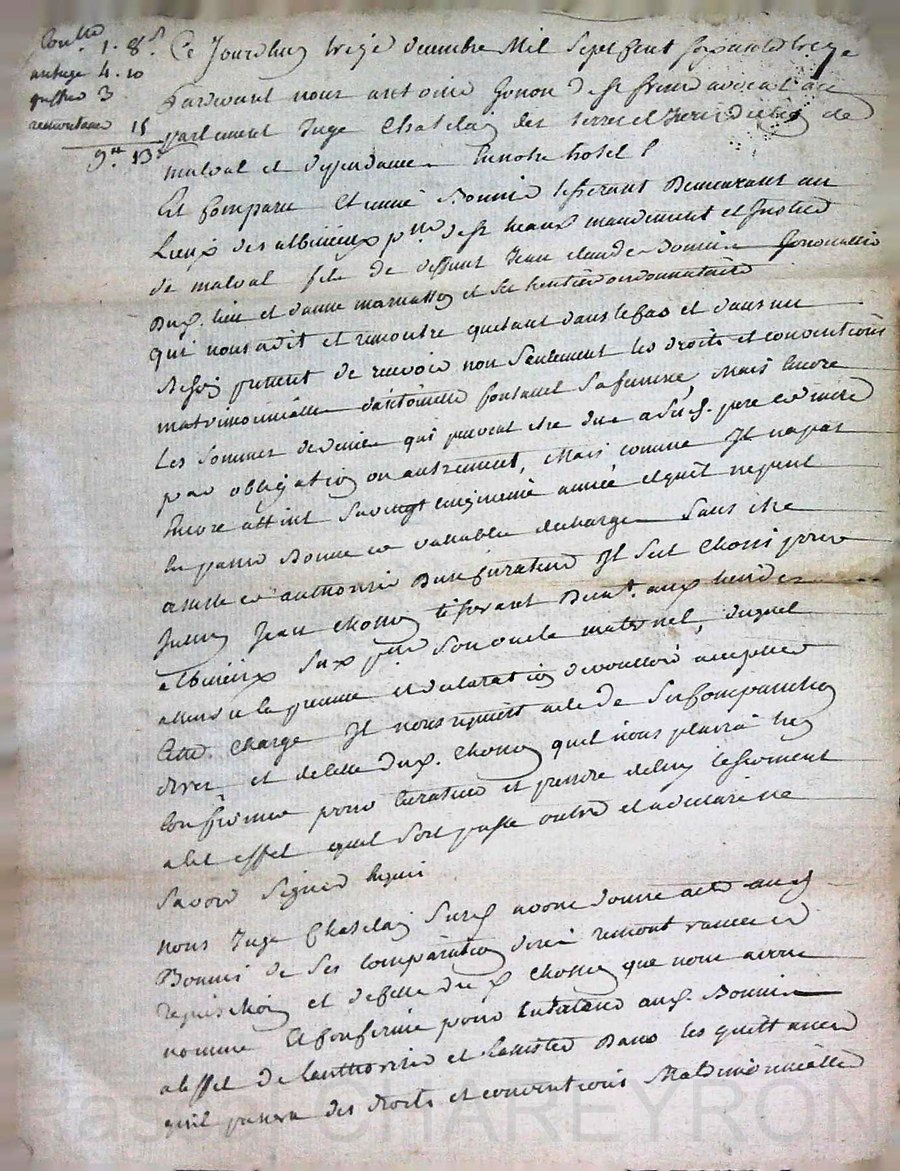 Controlle 1. 8s.
4. 10
greffier 3
remontrance 15
9tt. 13s
Ce Jourdhuy treize decembre Mil Sept Cent soixante treize
Pardevant nous antoine Gonon de St fresne avocat au
parlement Juge Chatelain des terres et Jurisdiction de
malval et dependance En notre hotel
Est Comparu Etienne Bonnie tisserant Demeurant au
Lieux des albineux psse de St heand mandement et Justice
de malval fils de deffunt Jean claude Bonnie
Dud. lieu et danne marnasse et Son heritier
qui nous a dit et remontre quetant dans le cas et dans un
Besoin present de recevoir non Seulement les droits et conventions
matrimonielles dantoinette fontanel Sa femme Mais Encore
Les Sommes qui peuvent etre due a Sesd. pere et mere
par obligation ou autrement, Mais comme Il na pas
Encore attint Sa vingt cinquieme année et quil ne peut
En passer Bonne et vallable decharge Sans etre
assisté et authorisé Dun Curateur Il Sest Choisi pour
Jean Chosson tisserant Demt. aux lieu des
albineux Susd psse Son oncle maternel, duquel
la presence et declaration de vouloir accepter
Cette Charge Il nous requiert acte de Sa Comparution
et de celle dud. Chosson quil nous plaira
Confirmer pour Curateur et prendre de luy le Serment
a cet effet quil Soit passé outre et a declaré ne
Savoir Signer Enquis
Nous Juge Chatelain Susd avons donné acte aud
Bonnie de Ses Comparution remontrance et
requisition et de celle dud Chosson que nous avons
nommé et Confirmé pour Curateur aud. Bonnie
a leffet de lauthoriser et lassister Dans les quittances
quil passera des droits et conventions Matrimonielles
Pascal CHAREYRON